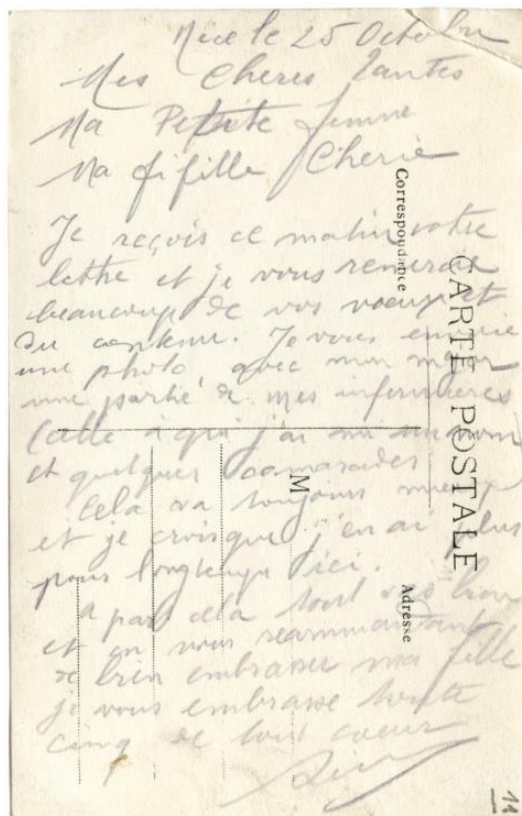 Nice le 25 Octobre
Mes Cheres Tantes
Ma Petite femme
Ma fifille Cherie
Je reçois ce matin votre
lettre et je vous remercie
beaucoup de vos voeux et
du contenu. Je vous envoie
une photo avec mon major
une partie de mes infirmières
Celle à qui j'ai mi un nom
et quelques camarades
Cela va toujours mieux
et je crois que j'en ai plus
pour longtemps ici.
a part cela tout va bien
et en vous recommandant
de bien embrasser ma fille
je vous embrasse toute
cinq de tout coeur
CARTE POSTALE
Correspondance
Adresse
M
11